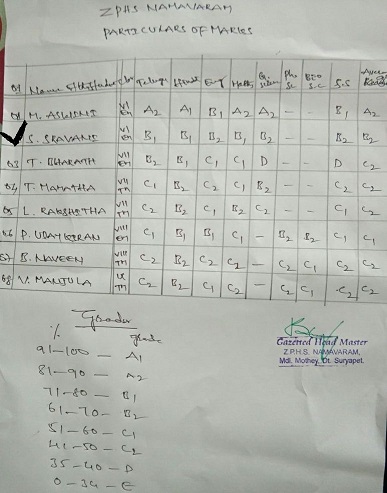 Z.P.H.S NAMAVARAM
PARTICULARS OF MARKS
Name of the Student Class Telugu Hindi Eng Maths G. Science Phy Sc Bio S.C S.S
01 M. ASWINI VI EM A2 A1 B1 A2 A2 - - B1 A2
S. SRAVANI VI EM B1 B1 B2 B1 B1 - - B2 B2
03 T. BHARATH VII EM B2 B1 C1 C1 D - - D C2
04 T. MAMATHA VII TM C1 B2 C2 C1 B2 - - C2 C2
05 L. RAKSHITHA VII TM C2 B2 C1 B2 C2 - - C1 C2
06 P. UDAY KIRAN VIII EM C1 B1 B1 C1 - B2 B2 C1 C1
07 B. NAVEEN VIII TM C2 B2 C2 C2 - C2 C1 C2 C2
08 V. MANJULA IX TM C2 B2 C1 C2 - C2 C1 C2 C2
Grades
% grade
91-100 - A1
81-90 - A2
71-80 - B1
61-70 - B2
51-60 - C1
41-50 - C2
35-40 - D
0-34 - E
Gazetted Head Master
Z.P.H.S. NAMAVARAM,
Mdl. Mothey, Dt. Suryapet.